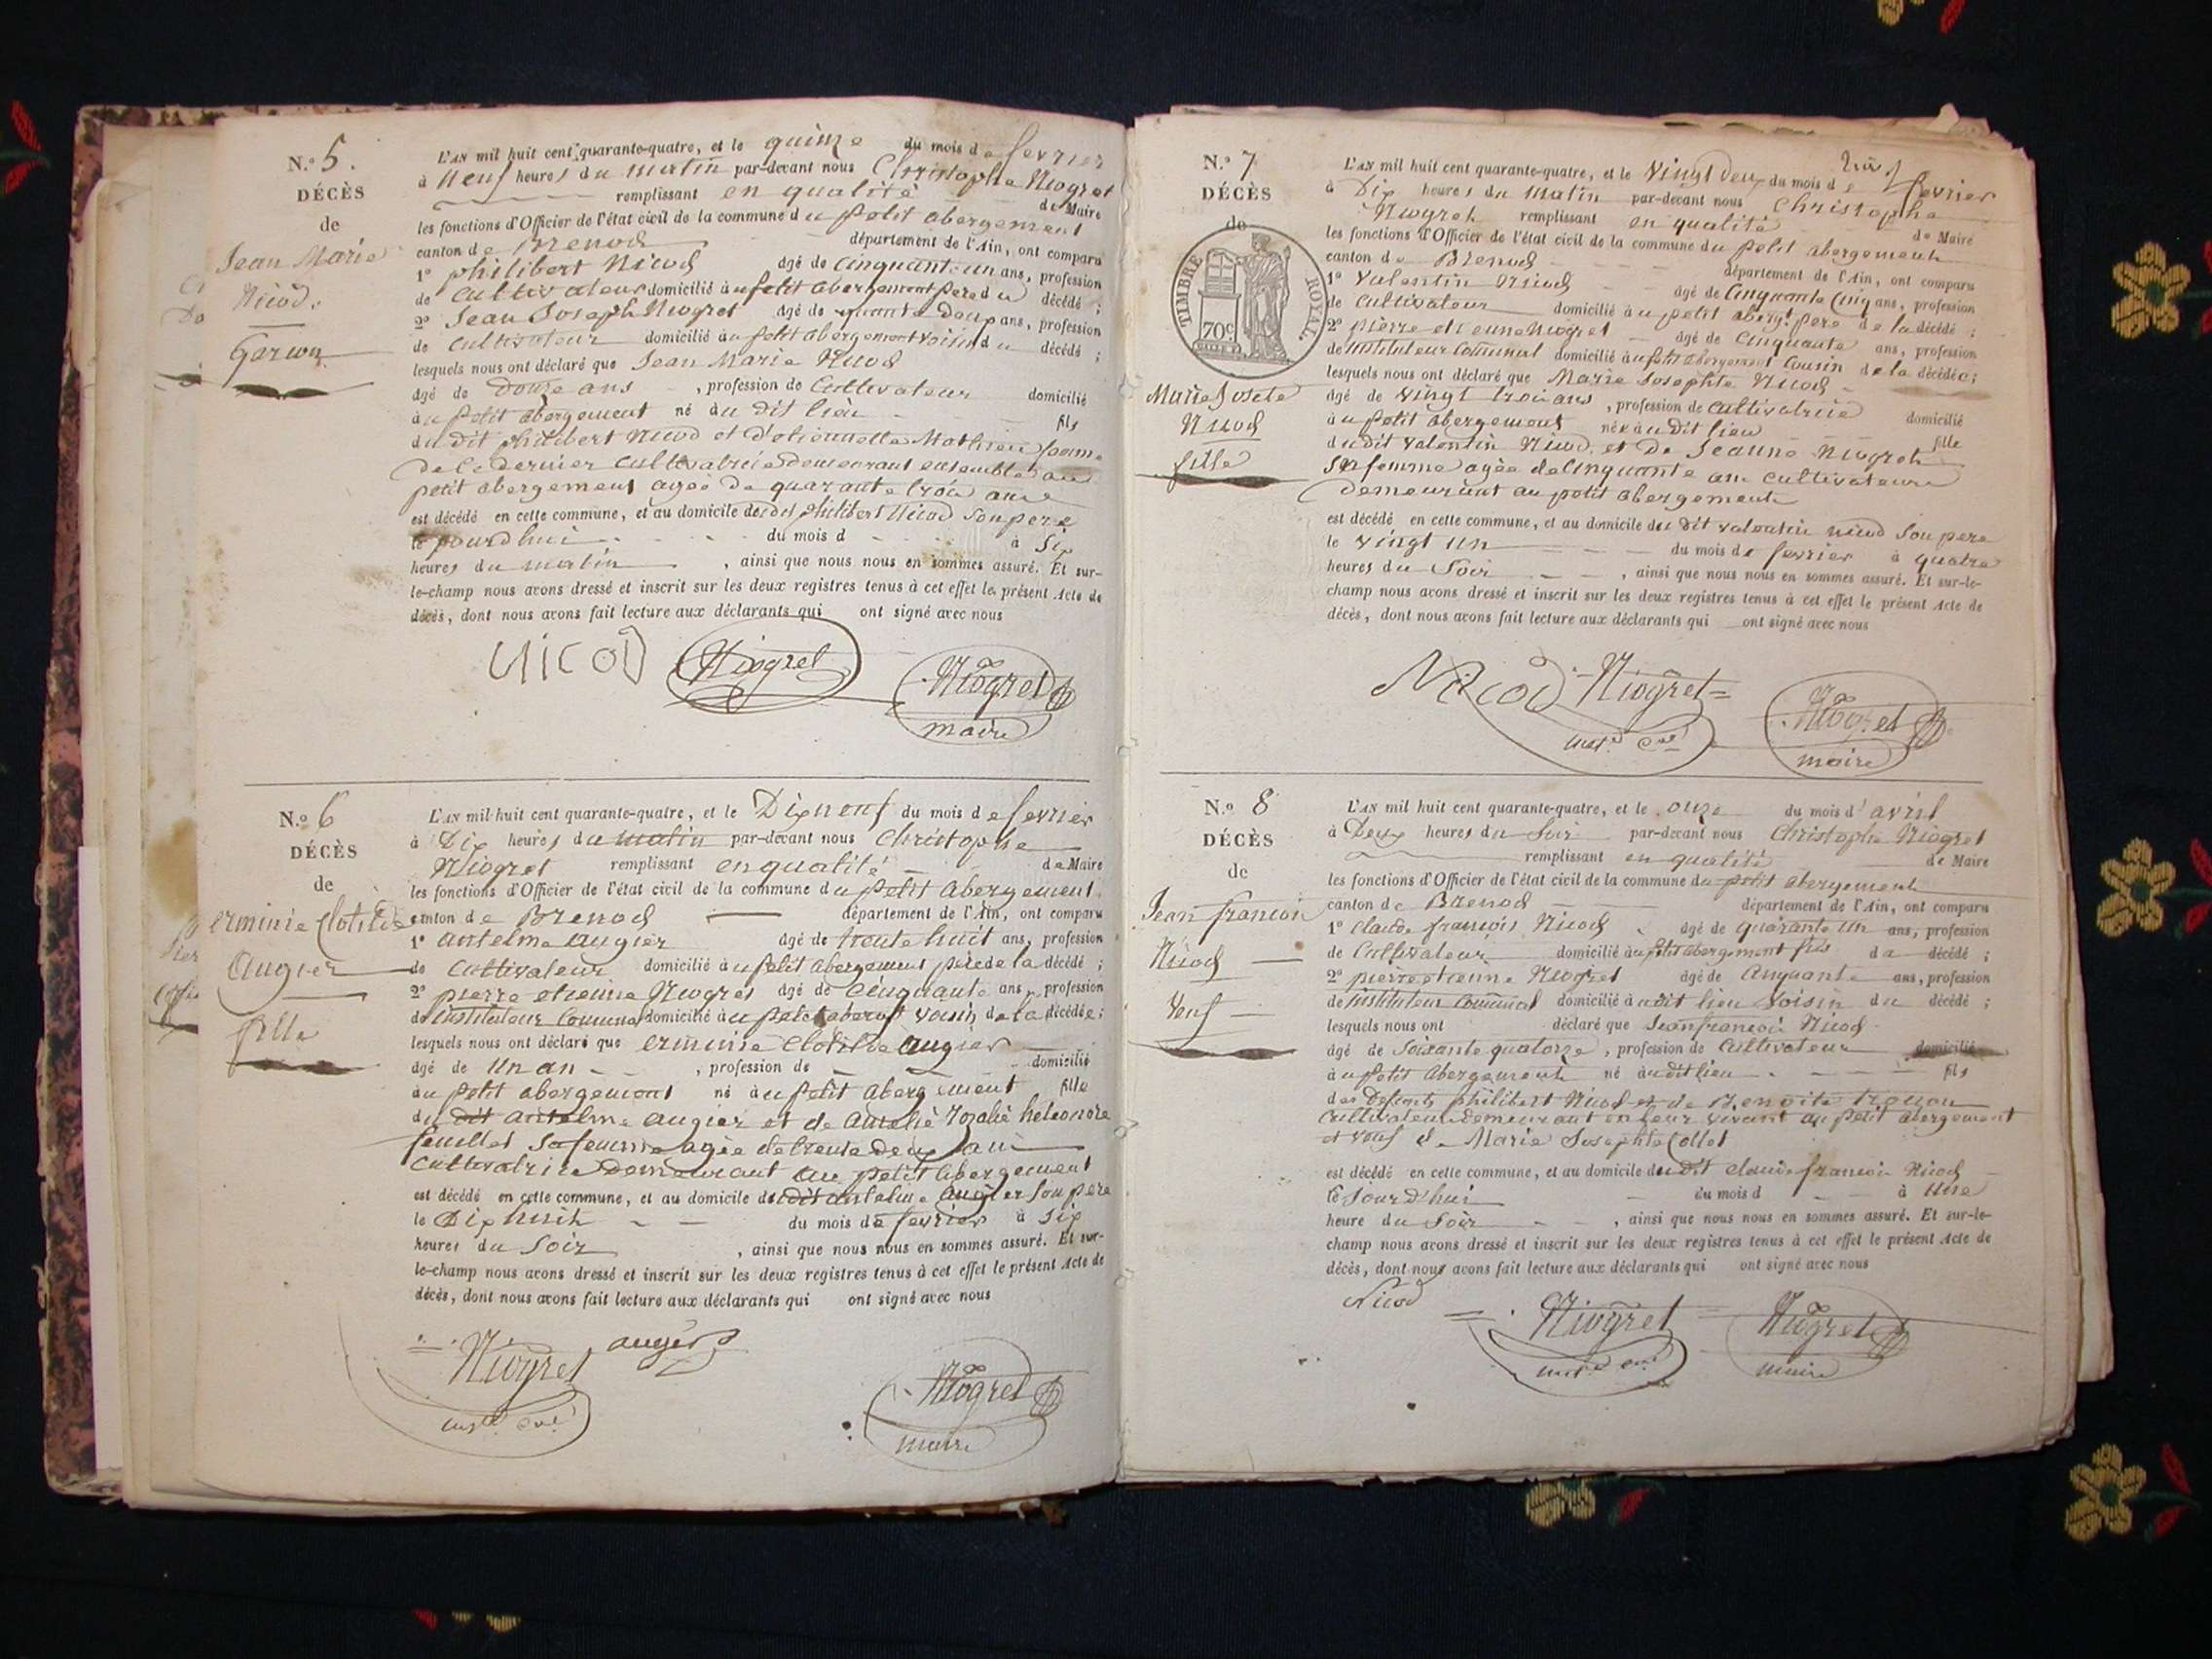 N.º 5.
DÉCÈS
de
Jean Marie
Nicod.
Garçon
L'AN mil huit cent quarante-quatre, et le quinze du mois de fevrier
à neuf heures du matin par-devant nous Christophe Niogret
remplissant en qualité de Maire
les fonctions d'Officier de l'état civil de la commune du petit abergement
canton de Brenod département de l'Ain, ont comparu
1º philibert Nicod âgé de cinquante un ans, profession
de cultivateur domicilié au petit abergement pere du décédé ;
2º Jean Joseph Niogret âgé de quarante deux ans, profession
de cultivateur domicilié au petit abergement voisin du décédé ;
lesquels nous ont déclaré que Jean Marie Nicod
âgé de douze ans , profession de Cultivateur domicilié
au petit abergement né au dit lieu fils
du dit philibert Nicod et d'etiennette Mathieu femme
de ce dernier cultivatrice demeurant ensemble au
petit abergement agée de quarante trois ans
est décédé en cette commune, et au domicile du dit philibert Nicod son pere
le jourdhui du mois d à six
heures du matin , ainsi que nous nous en sommes assuré. Et sur-
le-champ nous avons dressé et inscrit sur les deux registres tenus à cet effet le présent Acte de
décès, dont nous avons fait lecture aux déclarants qui ont signé avec nous
Nicod Niogret Niogret
maire
N.º 6
DÉCÈS
de
erminie Clotilde
Augier
fille
L'AN mil huit cent quarante-quatre, et le Dix neuf du mois de fevrier
à Dix heures du matin par-devant nous Christophe
Niogret remplissant en qualité de Maire
les fonctions d'Officier de l'état civil de la commune du petit abergement
canton de Brenod département de l'Ain, ont comparu
1º antelme augier âgé de trente huit ans, profession
de cultivateur domicilié au petit abergement père de la décédé ;
2º pierre etienne Niogret âgé de cinquante ans, profession
de instituteur communal domicilié au petit abergt voisin de la décédée ;
lesquels nous ont déclaré que erminie Clotilde augier
âgé de un an , profession de domicilié
au petit abergement né au petit abergement fille
du dit antelme augier et de aurelie rozalie heleonore
feuillet sa femme agée de trente deux ans
cultivatrice demeurant au petit abergement
est décédé en cette commune, et au domicile du dit antelme augier son pere
le Dix huit du mois de fevrier à six
heures du soir , ainsi que nous nous en sommes assuré. Et sur-
le-champ nous avons dressé et inscrit sur les deux registres tenus à cet effet le présent Acte de
décès, dont nous avons fait lecture aux déclarants qui ont signé avec nous
Niogret augier
Niogret
maire
N.º 7
DÉCÈS
de
TIMBRE ROYAL.
70c.
Marie Josete
Nicod
fille
L'AN mil huit cent quarante-quatre, et le vingt deux du mois de fevrier
à Dix heures du matin par-devant nous Christophe
Niogret remplissant en qualité de Maire
les fonctions d'Officier de l'état civil de la commune du petit abergement
canton de Brenod département de l'Ain, ont comparu
1º valentin Nicod âgé de cinquante cinq ans, profession
de cultivateur domicilié au petit abergt pere de la décédé ;
2º pierre etienne Niogret âgé de cinquante ans, profession
de instituteur communal domicilié au petit abergement cousin de la décédée ;
lesquels nous ont déclaré que Marie Josephte Nicod
âgé de vingt trois ans , profession de cultivatrice domicilié
au petit abergement née au dit lieu fille
du dit valentin Nicod et de Jeanne Niogret
sa femme agée de cinquante ans cultivateurs
demeurant au petit abergement
est décédé en cette commune, et au domicile du dit valentin nicod son pere
le vingt un du mois de fevrier à quatre
heures du soir , ainsi que nous nous en sommes assuré. Et sur-le-
champ nous avons dressé et inscrit sur les deux registres tenus à cet effet le présent Acte de
décès, dont nous avons fait lecture aux déclarants qui ont signé avec nous
Nicod Niogret Niogret
maire
N.º 8
DÉCÈS
de
Jean francois
Nicod
Veuf
L'AN mil huit cent quarante-quatre, et le onze du mois d'avril
à Deux heures du soir par-devant nous Christophe Niogret
remplissant en qualité de Maire
les fonctions d'Officier de l'état civil de la commune du petit abergement
canton de Brenod département de l'Ain, ont comparu
1º Claude francois Nicod âgé de quarante un ans, profession
de cultivateur domicilié au petit abergement fils du décédé ;
2º pierre etienne Niogret âgé de cinquante ans, profession
de instituteur communal domicilié au dit lieu voisin du décédé ;
lesquels nous ont déclaré que Jean francois Nicod
âgé de soixante quatorze , profession de cultivateur domicilié
au petit abergement né au dit lieu fils
des Defunts philibert Nicod et de Benoite
cultivateurs demeurant en leur vivant au petit abergement
et veuf de Marie Josephte Collet
est décédé en cette commune, et au domicile du dit claude francois Nicod
le jourd'hui du mois d à une
heure du soir , ainsi que nous nous en sommes assuré. Et sur-le-
champ nous avons dressé et inscrit sur les deux registres tenus à cet effet le présent Acte de
décès, dont nous avons fait lecture aux déclarants qui ont signé avec nous
Nicod Niogret Niogret
maire